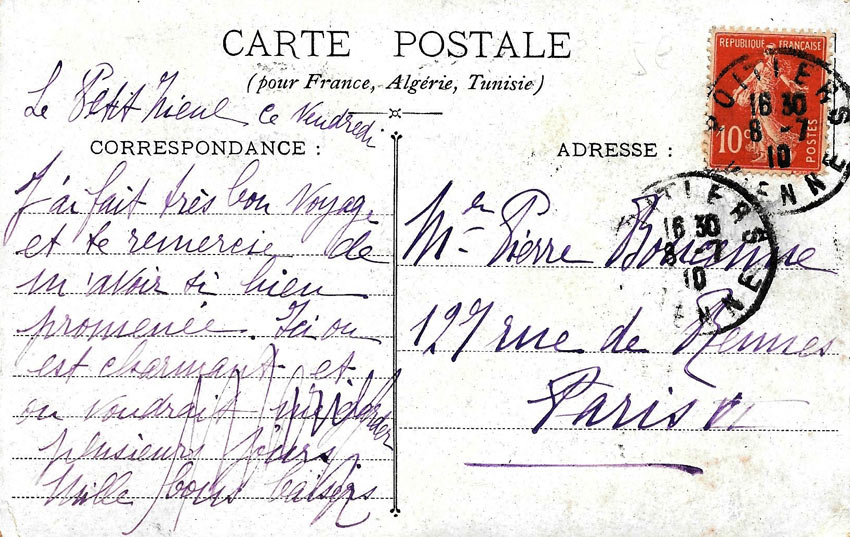 CARTE POSTALE
(pour France, Algérie, Tunisie)
Le Petit Nieul ce Vendredi
CORRESPONDANCE :
J'ai fait très bon voyage
et te remercie de
m'avoir si bien
promenée. Ici on
est charmant et
on voudrait me garder
plusieurs jours
Mille bons baisers
ADRESSE :
Mr Pierre
127 rue de Rennes
Paris VI
REPUBLIQUE FRANÇAISE
10c
POSTES
POITIERS
16 30
8 - 7
10
VIENNE
POITIERS
16 30
8 - 7
10
VIENNE